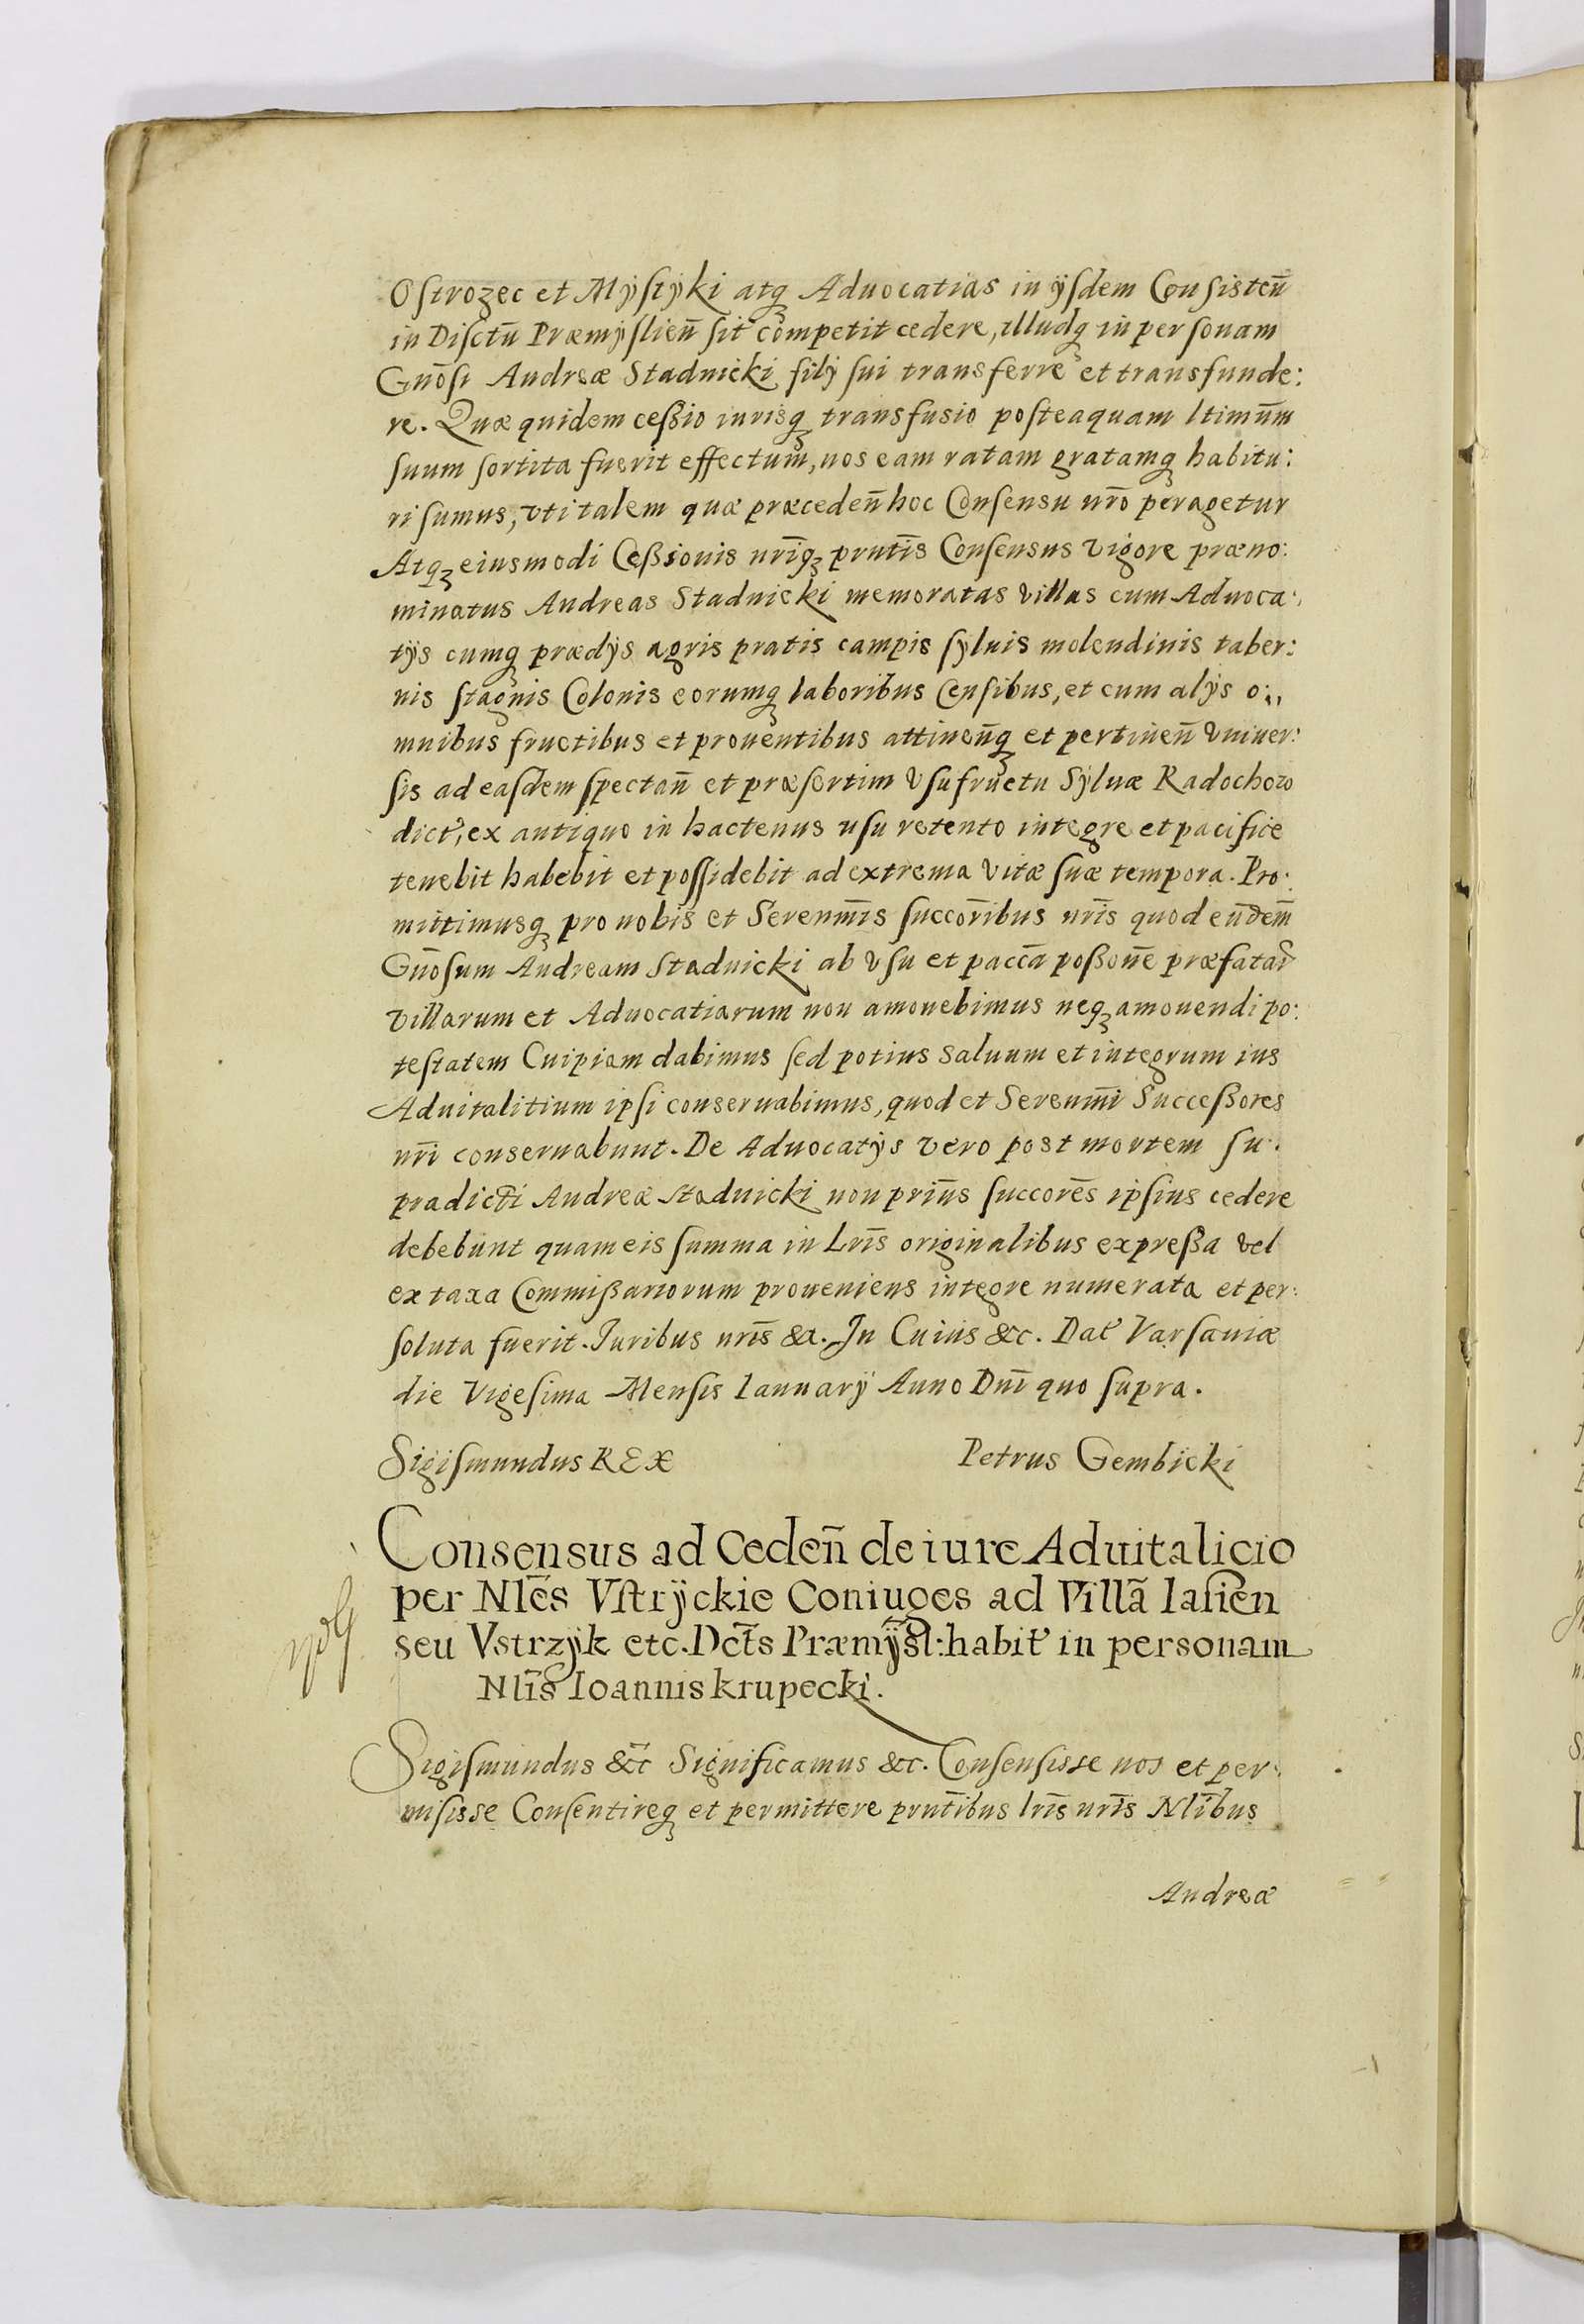 Ostrozec et Mÿstÿki atqꝫ Aduocatias in ÿsdem Consisteñ
in Disctũ Præmÿslieñ sit competit cedere, illudqꝫ in personam
Gnõsi Andreæ Stadnicki filÿ sui transferre et transfunde:
re. Quæ quidem ceßio iurisqꝫ transfusio posteaquam ltimũm
suum sortita fuerit effectum, nos eam ratam gratamqꝫ habitu:
ri sumus, vti talem quæ præcedeñ hoc Consensu nr̃o peragetur
Atqꝫ eiusmodi Ceßionis nr̃iqꝫ prñtis Consensus vigore præno:
minatus Andreas Stadnicki memoratas villas cum Aduoca:
tÿs cumqꝫ prædÿs agris pratis campis syluis molendinis taber:
nis stagnis Colonis eorumqꝫ laboribus Censibus, et cum alÿs o:
mnibus fructibus et prouentibus attineñqꝫ et pertineñ vniuer:
sis ad easdem spectañ et præsertim vsufructu Syluæ Radochow
dict̃, ex antiquo in hactenus usu retento integre et pacifice
tenebit habebit et possidebit ad extrema vitæ suæ tempora. Pro:
mittimusqꝫ pro nobis et Serenmĩs succor̃ibus nr̃is quod eñdem̃
Gnõsum Andream Stadnicki ab vsu et paccã poßonẽ præfatar̃
villarum et Aduocatiarum non amouebimus neqꝫ amouendi po:
testatem Cuipiam dabimus sed potius saluum et integrum ius
Aduitalitium ipsi conseruabimus, quod et Serenmĩ Succeßores
nr̃i conseruabunt. De Aduocatÿs vero post mortem su:
pradicti Andreæ Stadnicki non priũs succorẽs ipsius cedere
debebunt quam eis summa in Lrĩs originalibus expreßa vel
ex taxa Commißariorum proueniens integre numerata et per:
soluta fuerit. Juribus nr̃is &c. In Cuius &c. Dat̃ Varsauiæ
die Vigesima Mensis Ianuarÿ Anno Dnĩ quo supra.
Sigismundus REX Petrus Gembicki
Consensus ad Cedeñ de iure Aduitalicio
per Nlẽs Vstrÿckie Coniuges ad Villã Iasień
seu Vstrzÿk etc. Dct̃s Præmÿsl: habit̃ in personam
Nlĩs Ioannis krupecki.
Sigismundus &c Significamus &c. Consensisse nos et per:
misisse Consentireqꝫ et permittere prñtibus lrĩs nr̃is Nlĩbus
Andreæ